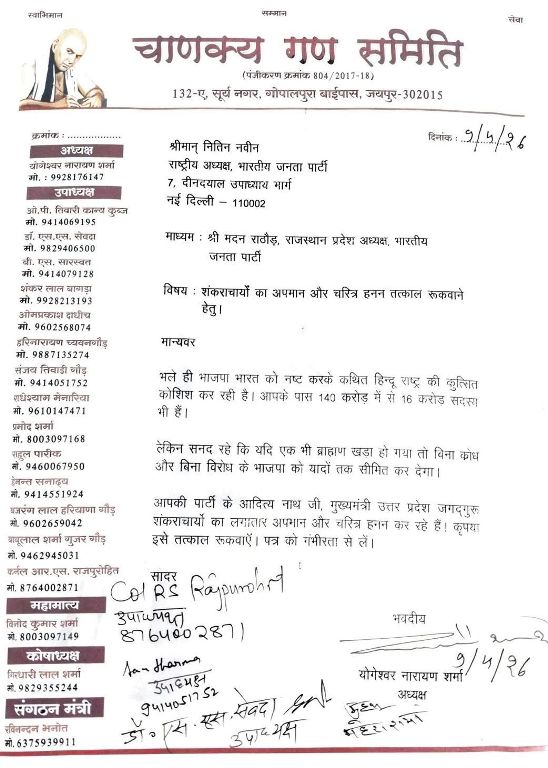 स्वाभिमान
सम्मान
सेवा
चाणक्य गण समिति
(पंजीकरण क्रमांक 804/2017-18)
132-ए, सूर्य नगर, गोपालपुरा बाईपास, जयपुर-302015
क्रमांक : ..................
दिनांक : 9/4/26
अध्यक्ष
योगेश्वर नारायण शर्मा
मो. : 9928176147
उपाध्यक्ष
ओ.पी. तिवारी कान्य कुब्ज
मो. 9414069195
डॉ. एस.एस. सेवदा
मो. 9829406500
बी. एस. सारस्वत
मो. 9414079128
शंकर लाल बागड़ा
मो. 9928213193
ओमप्रकाश दाधीच
मो. 9602568074
हरिनारायण च्यवनगौड़
मो. 9887135274
संजय तिवाड़ी गौड़
मो. 9414051752
राधेश्याम मेनारिया
मो. 9610147471
प्रमोद शर्मा
मो. 8003097168
राहुल पारीक
मो. 9460067950
हेमन्त सनाढ्य
मो. 9414551924
बजरंग लाल हरियाणा गौड़
मो. 9602659042
बाबूलाल शर्मा गुजर गौड़
मो. 9462945031
कर्नल आर.एस. राजपुरोहित
मो. 8764002871
महामात्य
विनोद कुमार शर्मा
मो. 8003097149
कोषाध्यक्ष
गिरधारी लाल शर्मा
मो. 9829355244
संगठन मंत्री
रविनन्दन भनोत
मो. 6375939911
श्रीमान् नितिन नवीन
राष्ट्रीय अध्यक्ष, भारतीय जनता पार्टी
7, दीनदयाल उपाध्याथ भार्ग
नई दिल्ली – 110002
माध्यम : श्री मदन राठौड़, राजस्थान प्रदेश अध्यक्ष, भारतीय
जनता पार्टी
विषय : शंकराचार्यो का अपमान और चरित्र हनन तत्काल रूकवाने
हेतु।
मान्यवर
भले ही भाजपा भारत को नष्ट करके कथित हिन्दू राष्ट्र की कुत्सित
कोशिश कर रही है। आपके पास 140 करोड़ में से 16 करोड़ सदस्य
भी हैं।
लेकिन सनद रहे कि यदि एक भी ब्राहाण खडा हो गया तो बिना क्रोध
और बिना विरोध के भाजपा को यादों तक सीमित कर देगा।
आपकी पार्टी के आदित्य नाथ जी, मुख्यमंत्री उत्तर प्रदेश जगद्गुरू
शंकराचार्यो का लगातार अपमान और चरित्र हनन कर रहे हैं। कृपया
इसे तत्काल रूकवाऍ। पत्र को गंभीरता से लें।
सादर
Col RS Rajpurohit
उपाध्यक्ष
8764002871
भवदीय
9/4/26
योगेश्वर नारायण शर्मा
अध्यक्ष
Sharma
उपाध्यक्ष
9414051752
डॉ. एस. एस. सेवदा
उपाध्यक्ष